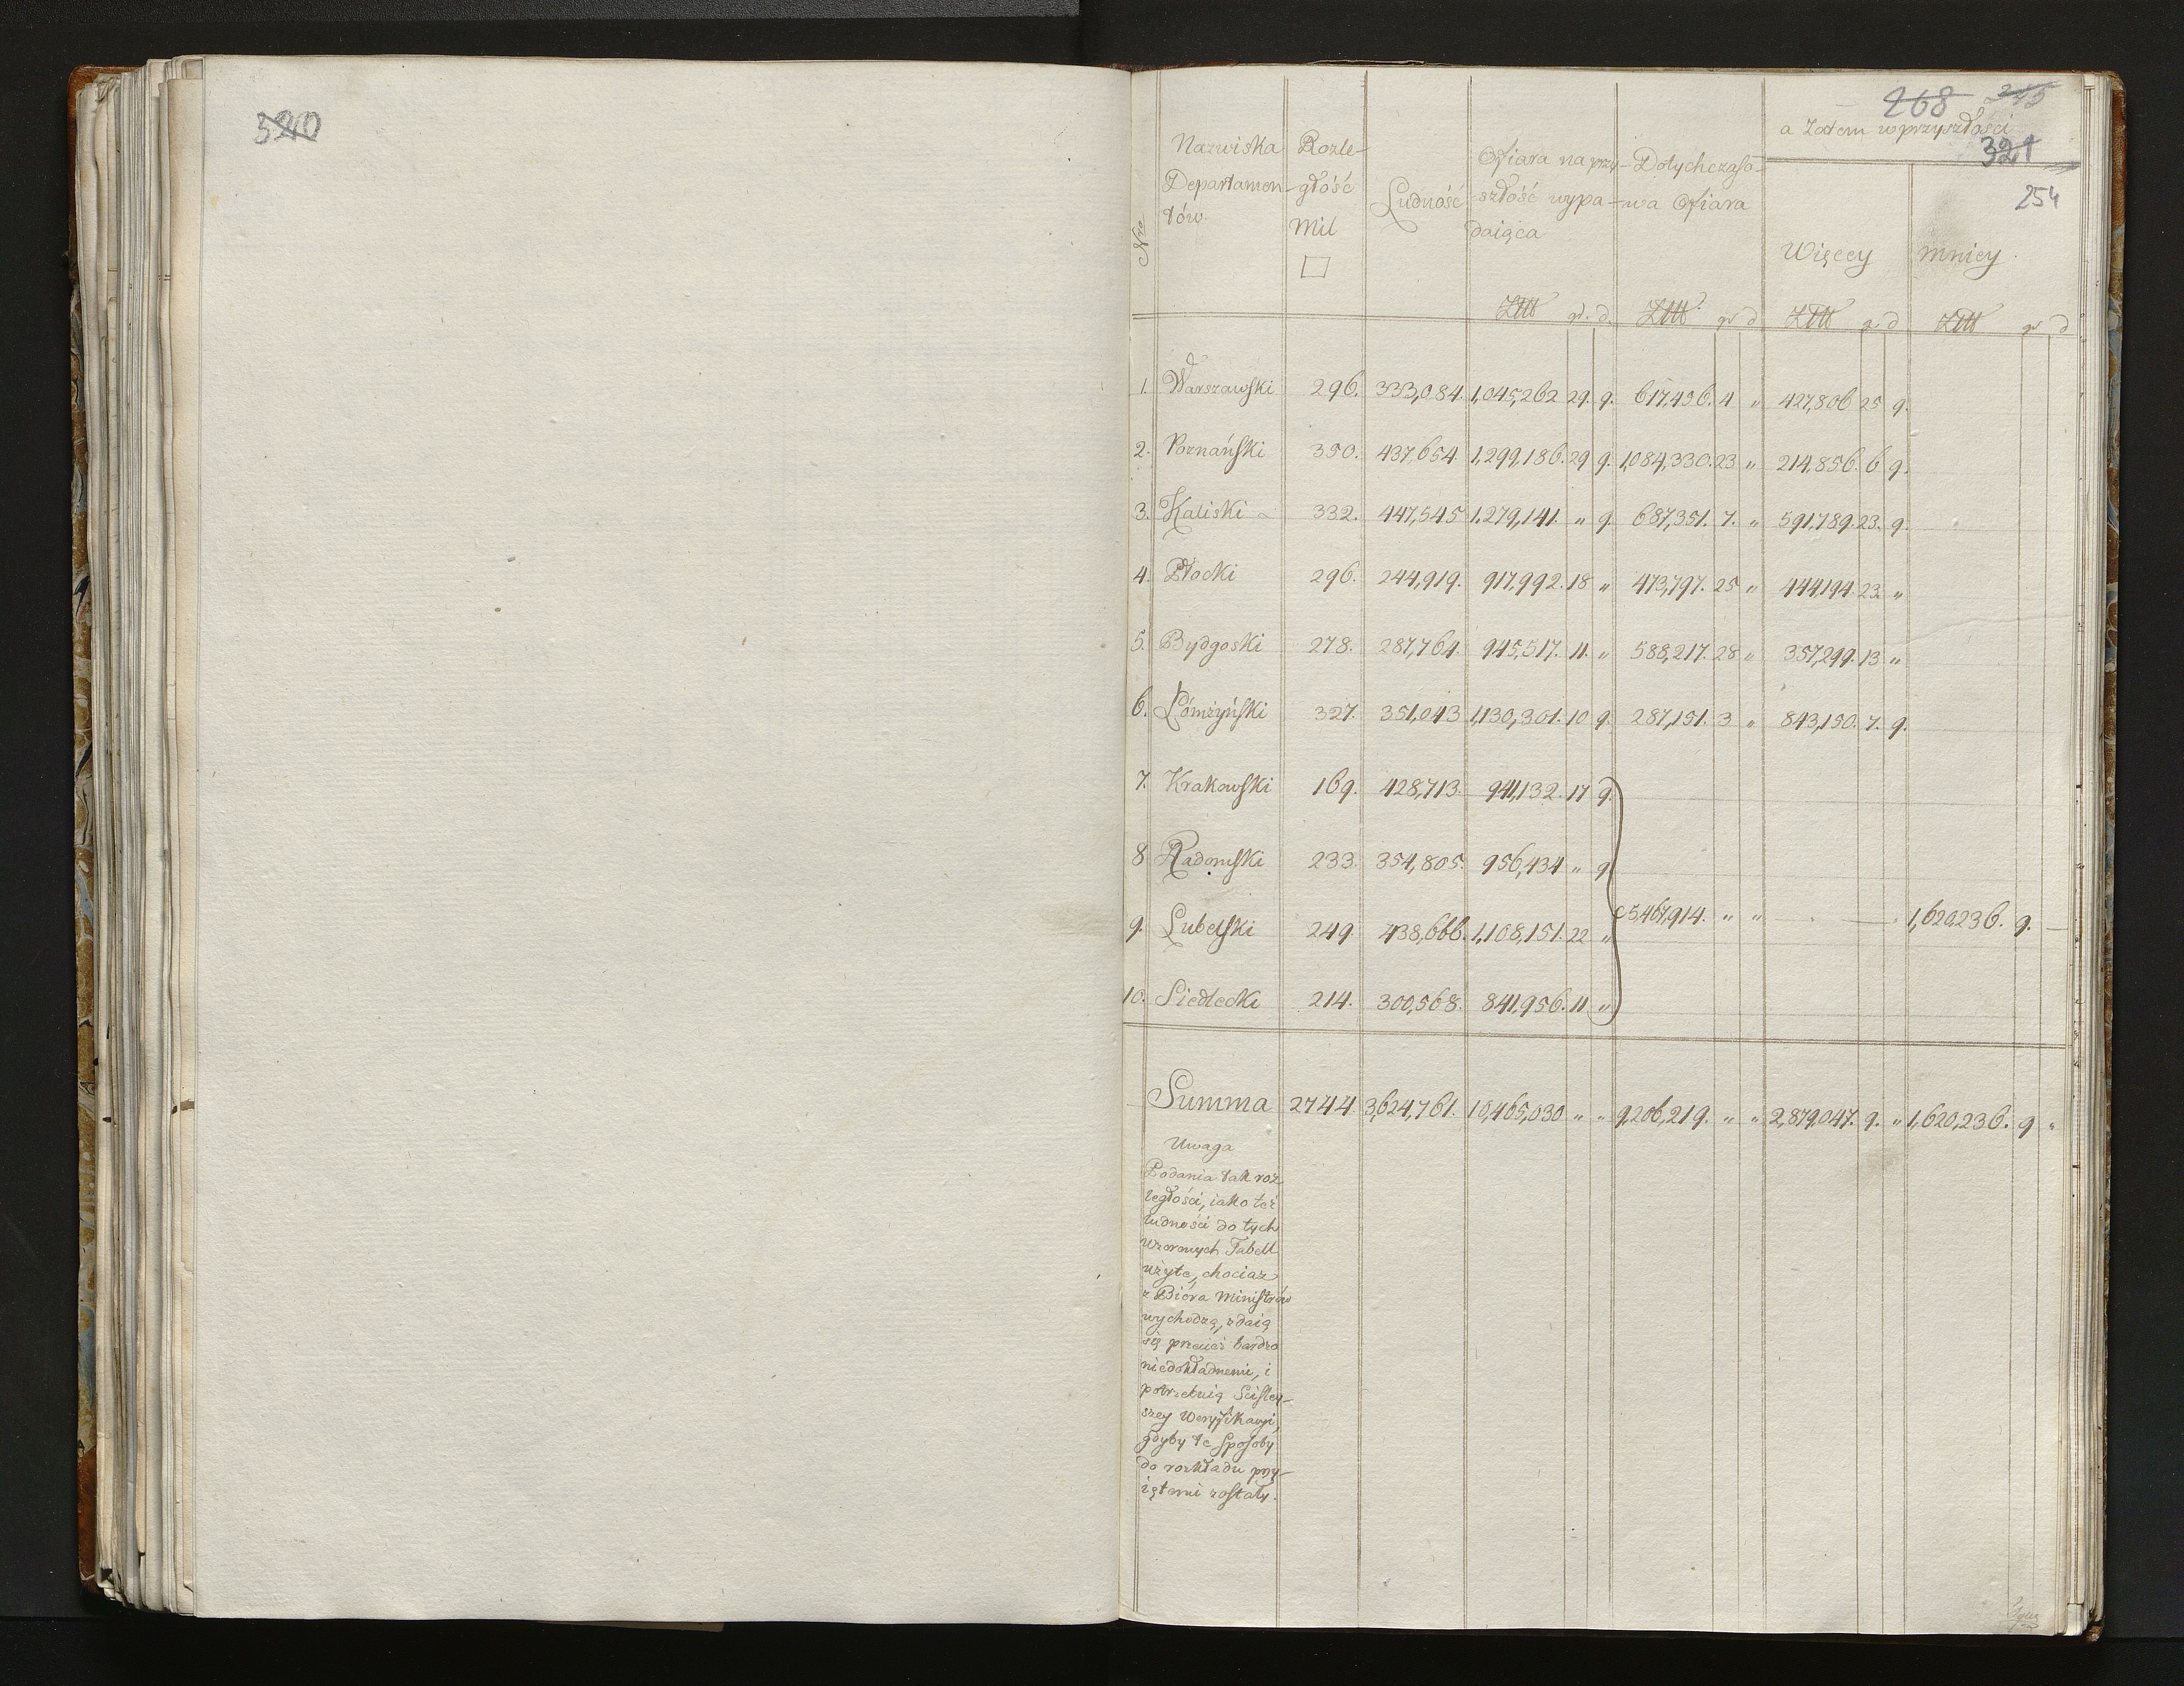 520
268 245
a Zatem w przyszłości
321
254
Nro
Nazwiska Departamentów
Rozległość Mil □
Ludność
Ofiara na przyszłość wypadaiąca
Dotychczasowa Ofiara
Więcey
mniey
Złłt gr. d. Złłt gr d Złłt gr d Złłt gr d
1. Warszawski 296. 333,084. 1,045,262 29. 9. 617,456. 4 " 427,806 25 9.
2. Poznański 350. 437,654. 1,299,186. 29 9. 1,084,330. 23 " 214,856. 6 9.
3. Kaliski 332. 447,545 1,279,141. " 9. 687,351. 7. " 591,789. 23. 9.
4. Płocki 296. 244,919. 917,992. 18 " 473,797. 25 " 444,194. 23 "
5. Bydgoski 278. 287,764. 945,517. 11. " 588,217. 28 " 357,299. 13 "
6. Łómżyński 327. 351,043 1,130,301. 10 9. 287,151. 3 " 843,150. 7. 9.
7. Krakowski 169. 428,713. 941,132. 17 9.
8 Radomski 233. 354,805. 956,434 " 9
5,467,914. " " 1,620,236. 9. —
9. Lubelski 249. 438,666. 1,108,151. 22 "
10. Siedlecki 214. 300,568. 841,956. 11 "
Summa 2744. 3,624,761. 10,465,030 " " 9,206,219. " " 2,879,047. 9. " 1,620,236. 9 "
Uwaga
Podania tak roz
ległości, iako też
ludności do tych
wzorowych Tabell
użyte, chociaż
z Bióra Ministrów
wychodzą, zdaią
się przecież bardzo
niedokładnemi, i
potrzebuią Sciśley-
szey Weryfikacyi,
gdyby te Sposoby
do rozkładu przy-
iętemi zostały.